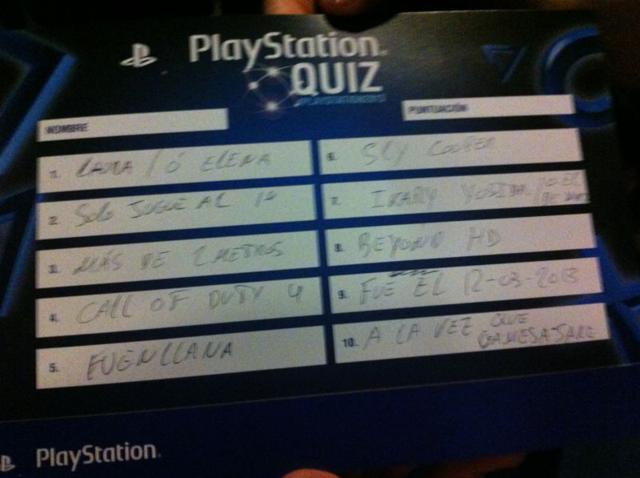 PlayStation
QUIZ
NOMBRE
PUNTUACIÓN
1. LAURA / Ó ELENA
2. SOLO JUGUE AL 1º
3. MÁS DE 2 METROS
4. CALL OF DUTY 4
5. FUENLLANA
6. SLY COOPER
7.
8. BEYOND HD
9. FUE EL 12-03-2013
10. A LA VEZ QUE
PlayStation